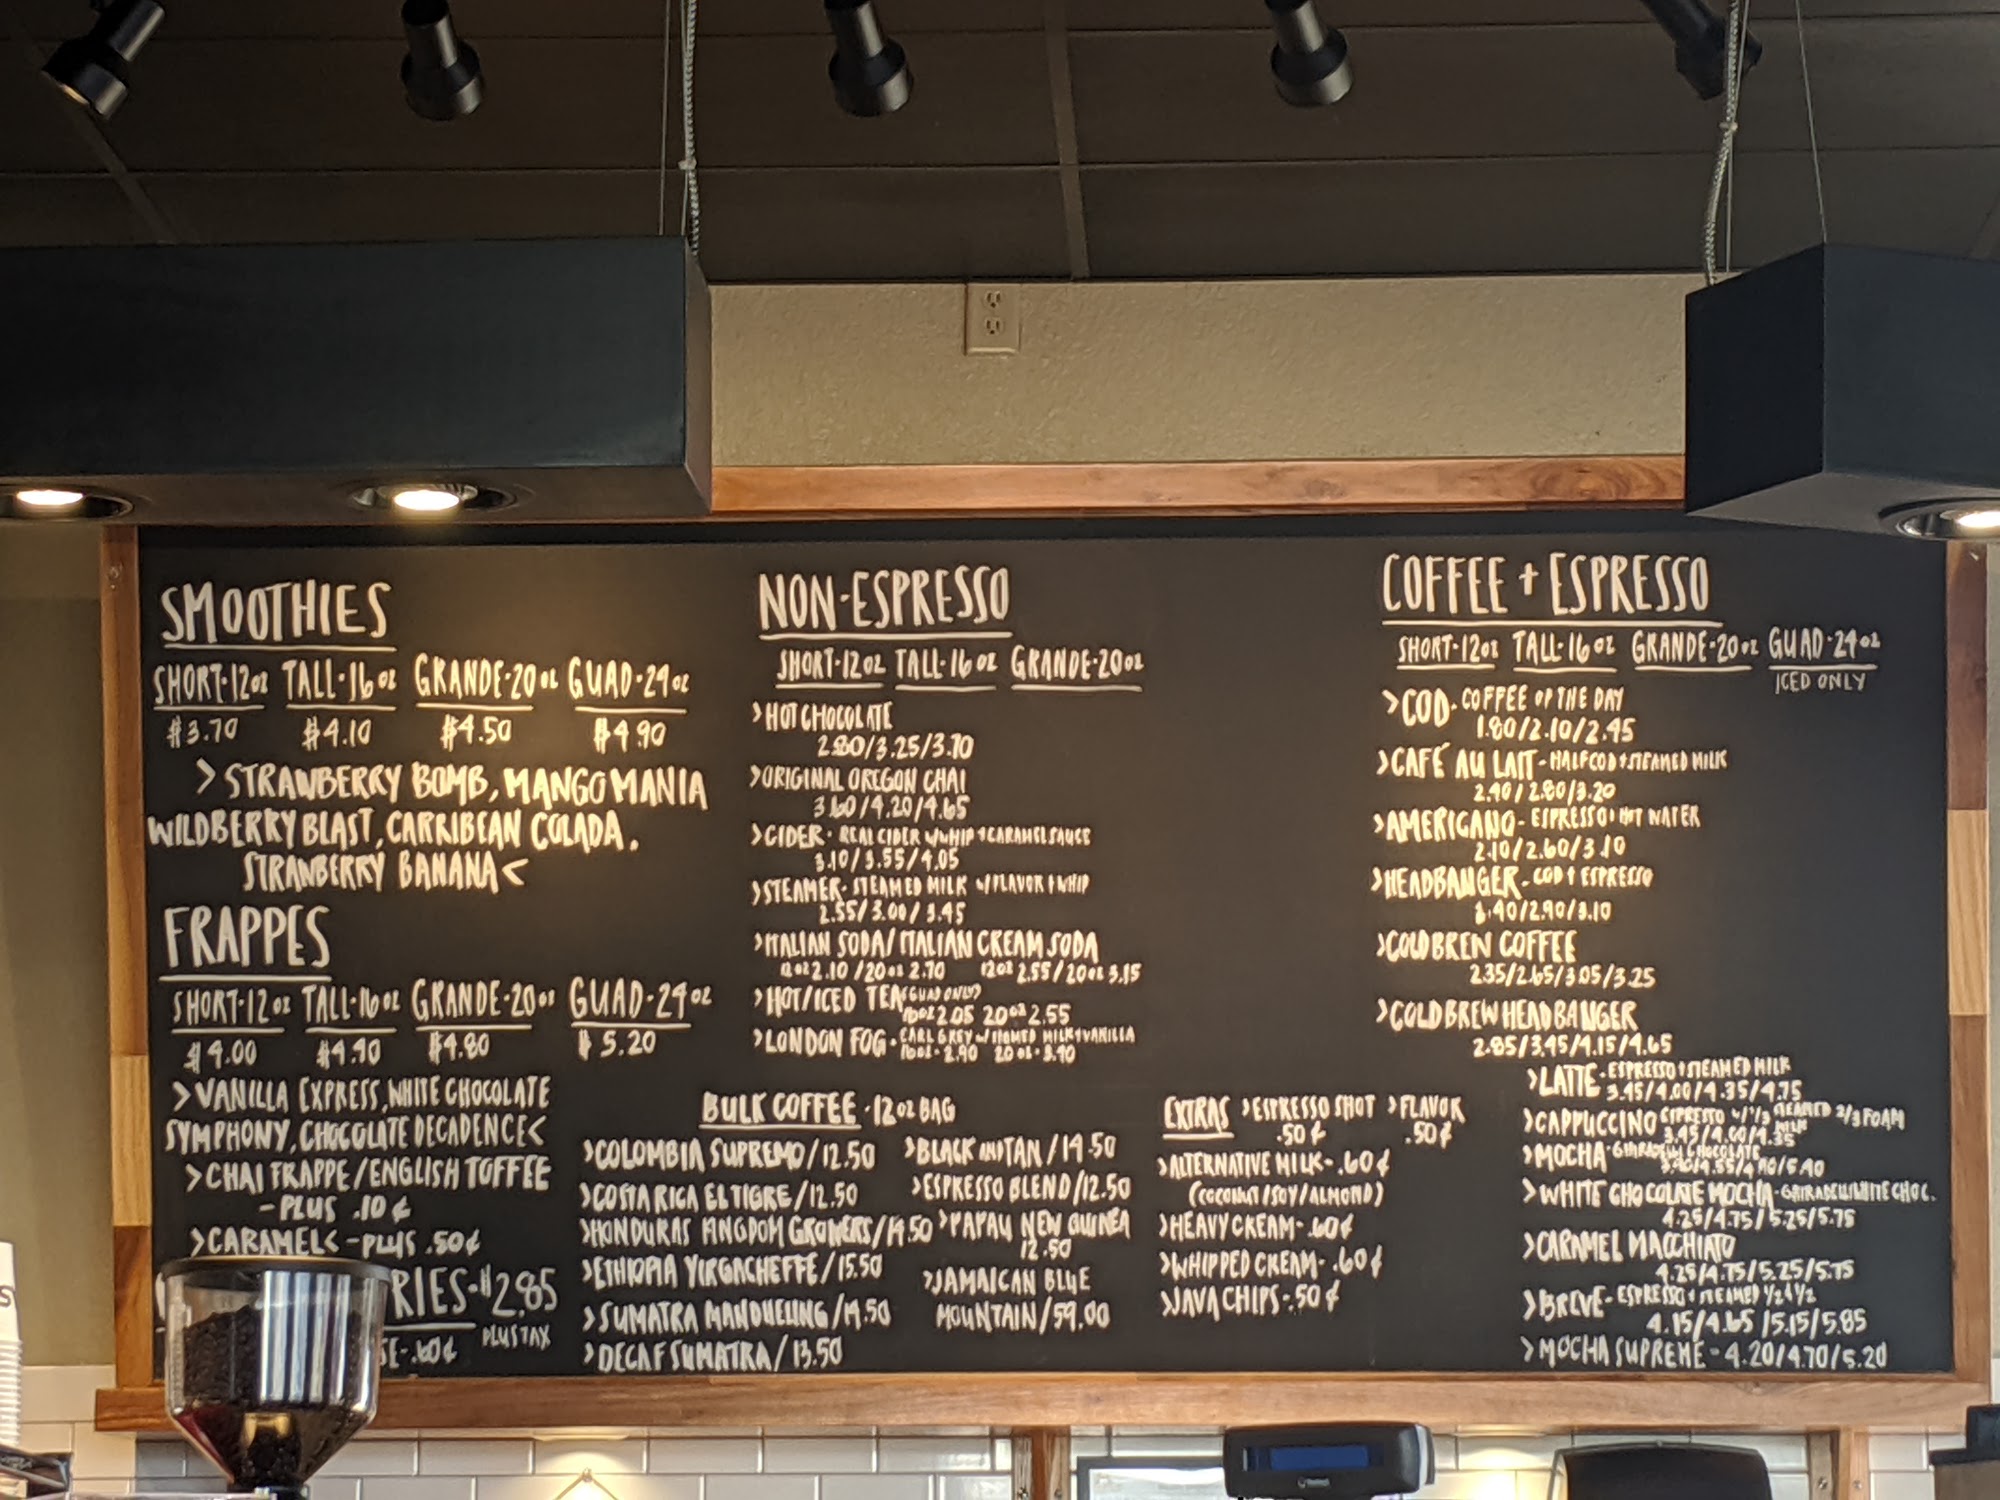 SMOOTHIES
SHORT·12oz TALL·16oz GRANDE·20oz GUAD·24oz
$3.70 $4.10 $4.50 $4.90
>STRAWBERRY BOMB, MANGO MANIA
WILDBERRY BLAST, CARRIBEAN COLADA,
STRAWBERRY BANANA<
FRAPPES
SHORT·12oz TALL·16oz GRANDE·20oz GUAD·24oz
$4.00 $4.40 $4.80 $5.20
>VANILLA EXPRESS, WHITE CHOCOLATE
SYMPHONY, CHOCOLATE DECADENCE<
>CHAI FRAPPE/ENGLISH TOFFEE
-PLUS .10¢
>CARAMEL<-PLUS .50¢
RIES·$2.85
PLUS TAX
SE-.60¢
NON-ESPRESSO
SHORT·12oz TALL·16oz GRANDE·20oz
>HOT CHOCOLATE
2.80/3.25/3.70
>ORIGINAL OREGON CHAI
3.60/4.20/4.65
>CIDER· REAL CIDER w/WHIP + CARAMEL SAUCE
3.10/3.55/4.05
>STEAMER· STEAMED MILK w/FLAVOR + WHIP
2.55/3.00/3.45
>ITALIAN SODA/ITALIAN CREAM SODA
12oz 2.10/20oz 2.70 12oz 2.55/20oz 3.15
>HOT/ICED TEA (GUAD ONLY)
16oz 2.05 20oz 2.55
>LONDON FOG· EARL GREY w/STEAMED MILK + VANILLA
16oz·2.90 20oz·3.40
BULK COFFEE·12oz BAG
>COLOMBIA SUPREMO/12.50
>COSTA RICA EL TIGRE/12.50
>HONDURAS KINGDOM GROWERS/14.50
>ETHIOPIA YIRGACHEFFE/15.50
>SUMATRA MANDHELING/14.50
>DECAF SUMATRA/13.50
>BLACK AND TAN/14.50
>ESPRESSO BLEND/12.50
>PAPAU NEW GUINEA
12.50
>JAMAICAN BLUE
MOUNTAIN/59.00
EXTRAS >ESPRESSO SHOT >FLAVOR
.50¢ .50¢
>ALTERNATIVE MILK-.60¢
(COCONUT/SOY/ALMOND)
>HEAVY CREAM-.60¢
>WHIPPED CREAM-.60¢
>JAVA CHIPS-.50¢
COFFEE + ESPRESSO
SHORT·12oz TALL·16oz GRANDE·20oz GUAD·24oz
ICED ONLY
>COD·COFFEE OF THE DAY
1.80/2.10/2.45
>CAFÉ AU LAIT-HALF COD + STEAMED MILK
2.40/2.80/3.20
>AMERICANO-ESPRESSO + HOT WATER
2.10/2.60/3.10
>HEADBANGER-COD + ESPRESSO
/2.90/3.10
>COLD BREW COFFEE
2.35/2.65/3.05/3.25
>COLD BREW HEADBANGER
2.85/3.45/4.15/4.65
>LATTE-ESPRESSO + STEAMED MILK
3.45/4.00/4.35/4.75
>CAPPUCCINO ESPRESSO w/ 1/3 STEAMED MILK 2/3 FOAM
3.45/4.00/4.35
>MOCHA-GHIRADELLI CHOCOLATE
/4.55/ /5.40
>WHITE CHOCOLATE MOCHA-GHIRADELLI WHITE CHOC.
4.25/4.75/5.25/5.75
>CARAMEL MACCHIATO
4.25/4.75/5.25/5.75
>BREVE-ESPRESSO + STEAMED 1/2 & 1/2
4.15/4.65/5.15/5.85
>MOCHA SUPREME-4.20/4.70/5.20